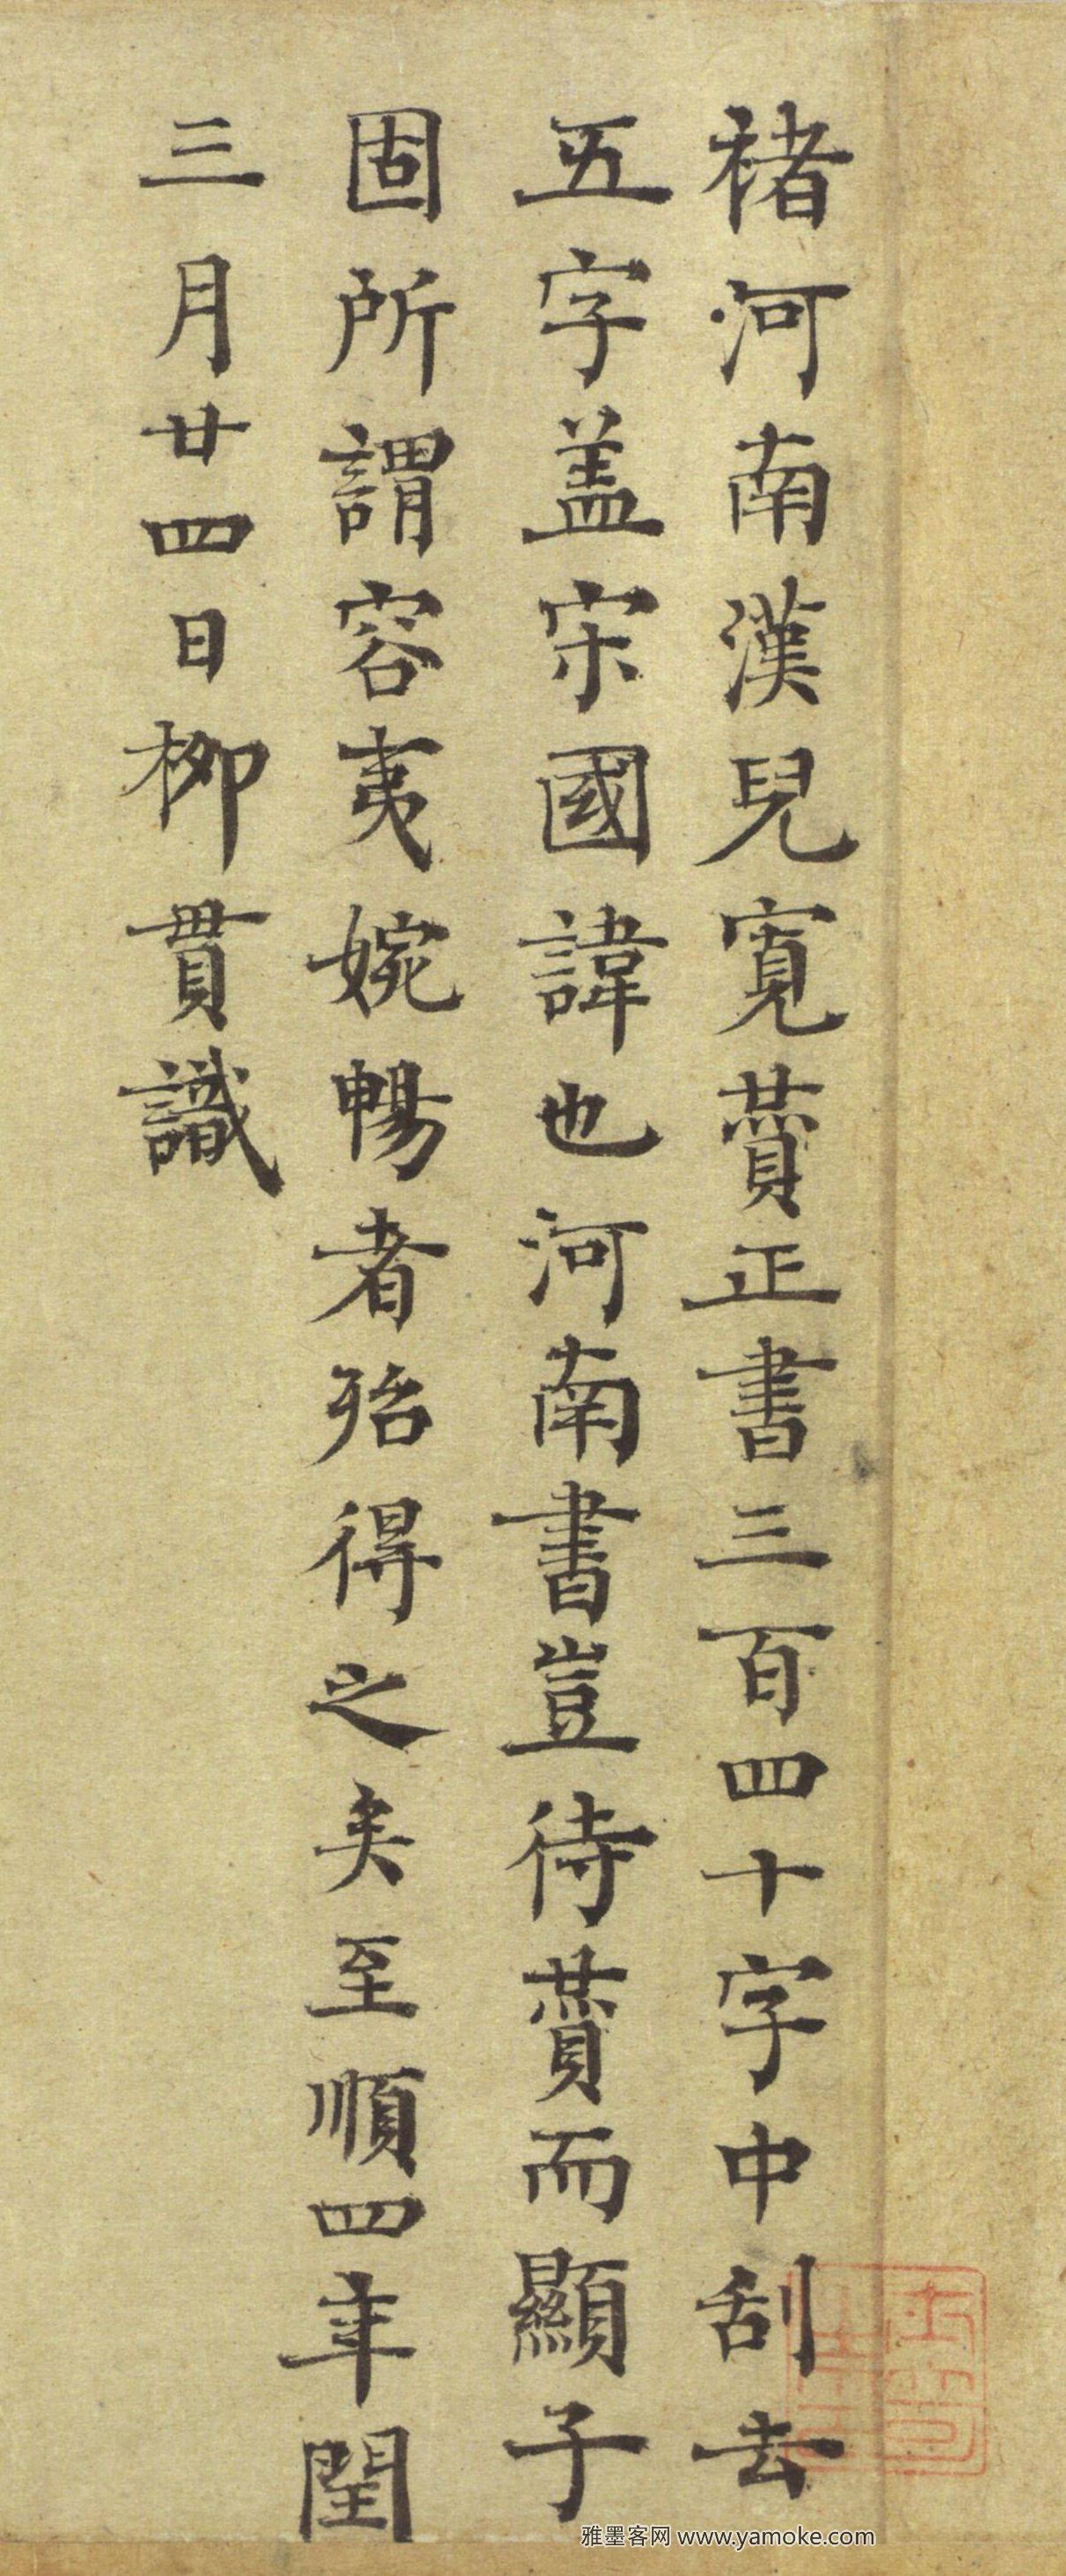 褚河南漢兒寬贊正書三百四十字中刮去
五字盖宋國諱也河南書豈待贊而顯子
固所謂容夷婉暢者殆得之矣至順四年閏
三月廿四日柳貫識
雅墨客网 www.yamoke.com